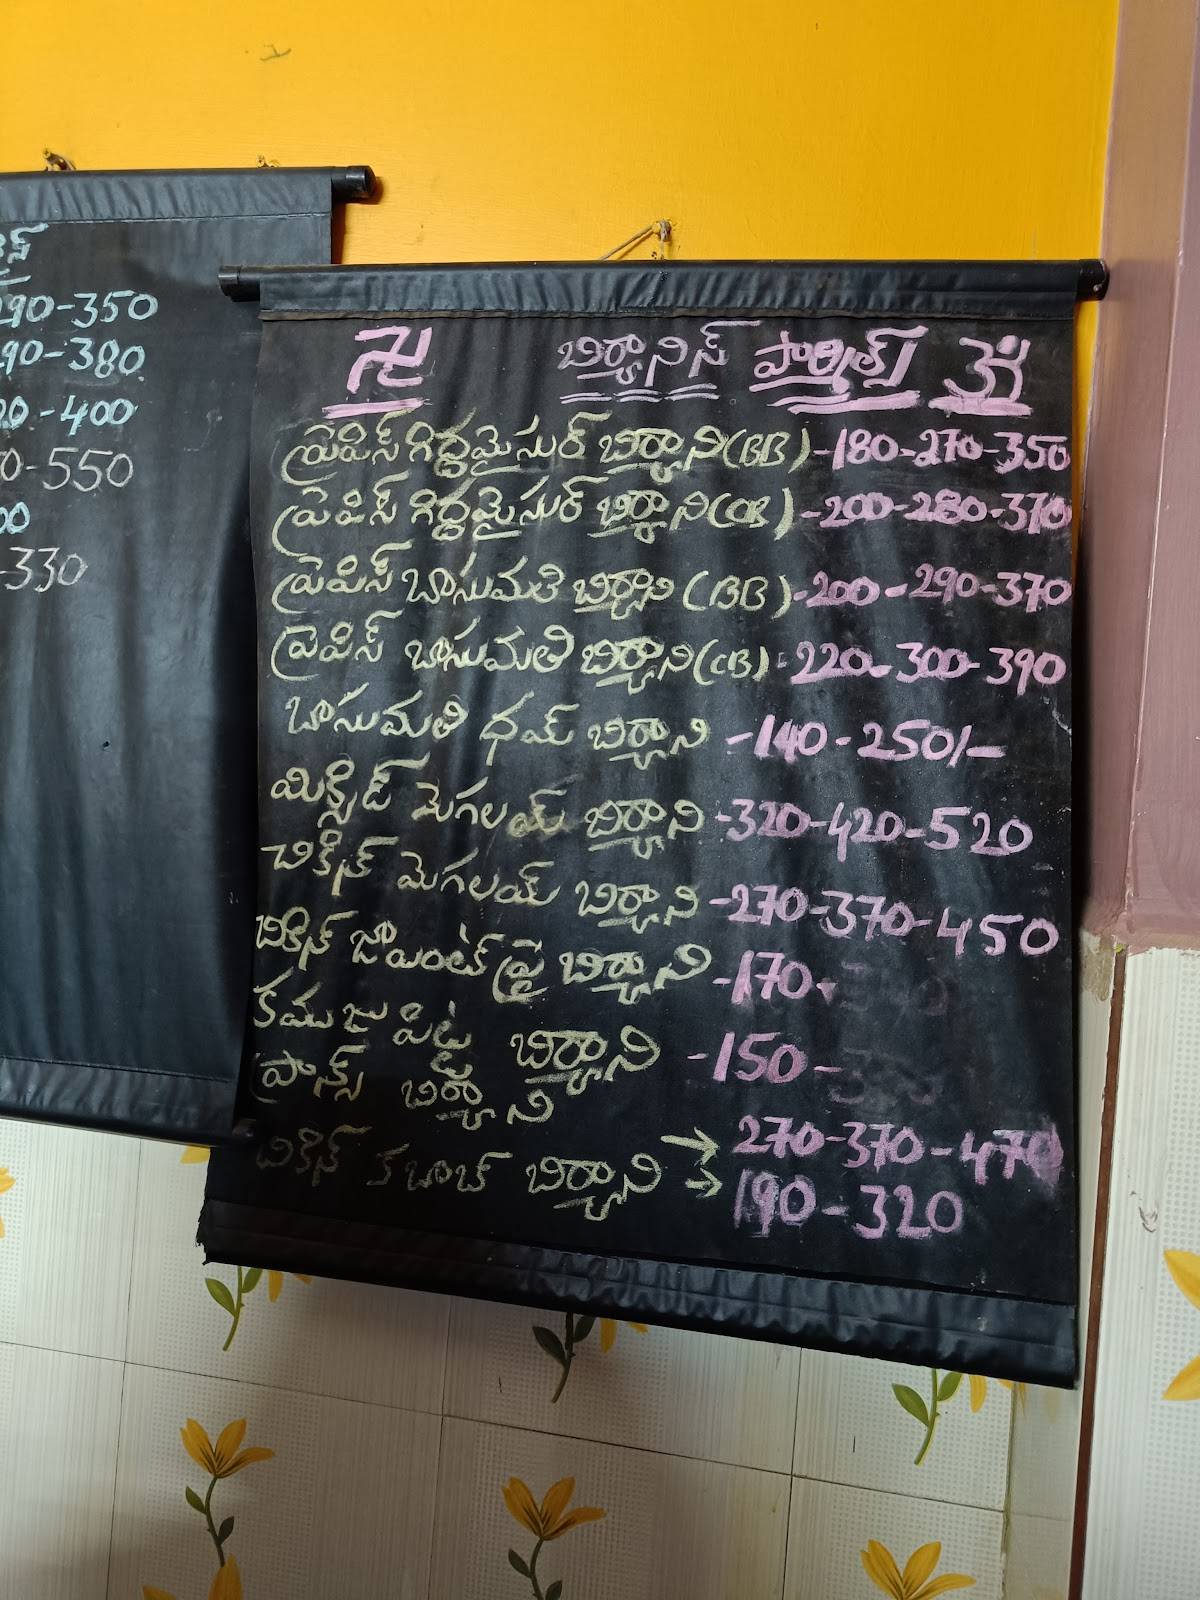 న్ 290-350
290-380
20-400
0-550
00
-330
బిర్యానిస్ పార్శిల్
త్రిపిస్ గిద్దమైసుర్ బిర్యాని (BB) -180-270-350
త్రిపిస్ గిద్దమైసుర్ బిర్యాని (CB) -200-280-370
త్రిపిస్ బాసుమతి బిర్యాని (BB) -200-290-370
త్రిపిస్ బాసుమతి బిర్యాని (CB) -220-300-390
బాసుమతి ధమ్ బిర్యాని -140-250/-
మిక్సిడ్ మెగలయ్ బిర్యాని -320-420-520
చికెన్ మెగలయ్ బిర్యాని -270-370-450
చికెన్ జాయింట్ ఫ్రై బిర్యాని -170-
కముజు పిట్ట బిర్యాని -150-
ఫ్రాన్స్ బిర్యాని → 270-370-470
చికెన్ కబాబ్ బిర్యాని → 190-320